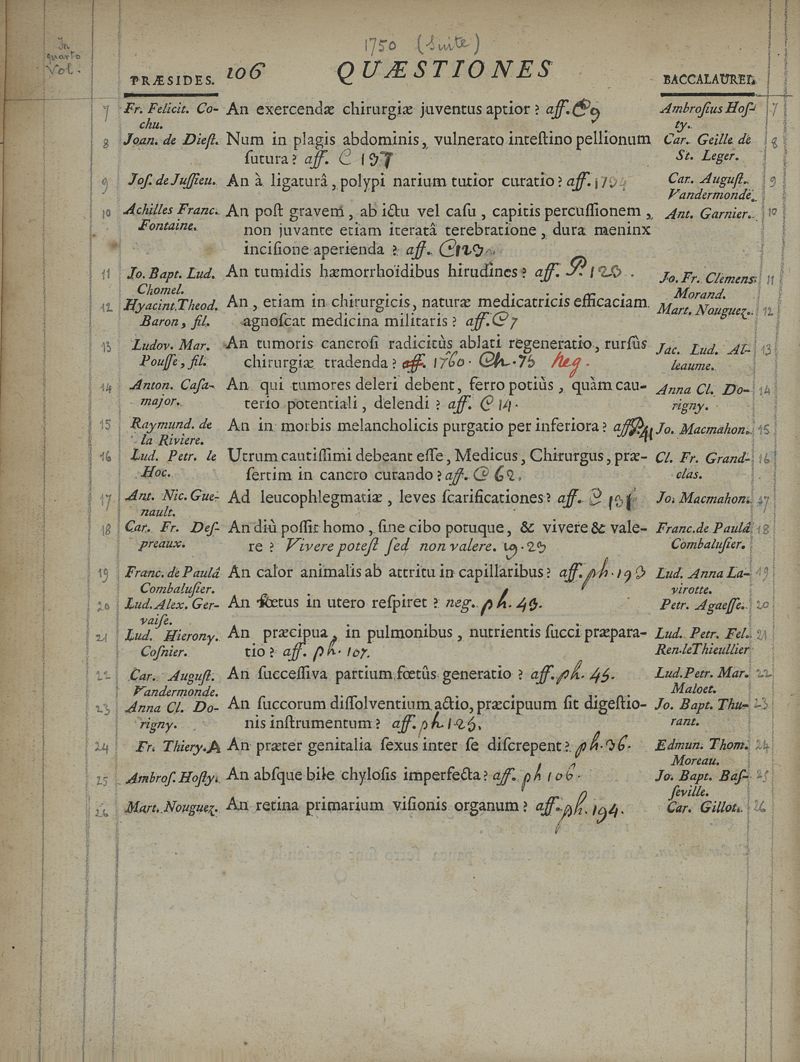 1750 (Suite)
In quarto Vol.
PRÆSIDES. 106 QUÆSTIONES BACCALAUREI.
7 Fr. Felicit. Co- An exercendæ chirurgiæ juventus aptior ? aff. Ambrosius Hos- 7
chu. ty.
8 Joan. de Diest. Num in plagis abdominis, vulnerato intestino pellionum Car. Geille de 8
sutura ? aff. C 137 St. Leger.
9 Jos. de Jussieu. An à ligaturâ, polypi narium tutior curatio ? aff. Car. August. 9
Vandermonde.
10 Achilles Franc. An post gravem, ab ictu vel casu, capitis percussionem, Ant. Garnier. 10
Fontaine. non juvante etiam iteratâ terebratione, dura meninx
incisione aperienda ? aff.
11 Jo. Bapt. Lud. An tumidis hæmorrhoïdibus hirudines ? aff. Jo. Fr. Clemens 11
Chomel. Morand.
12 Hyacint. Theod. An, etiam in chirurgicis, naturæ medicatricis efficaciam Mart. Nouguez. 12
Baron, fil. agnoscat medicina militaris ? aff. C 7
13 Ludov. Mar. An tumoris cancrosi radicitùs ablati regeneratio, rursùs Jac. Lud. Al- 13
Pousse, fil. chirurgiæ tradenda ? aff. 1760. Ch. 75 neg. leaume.
14 Anton. Casa- An qui tumores deleri debent, ferro potiùs, quàm cau- Anna Cl. Do- 14
major. terio potentiali, delendi ? aff. C 14. rigny.
15 Raymund. de An in morbis melancholicis purgatio per inferiora ? aff. Jo. Macmahon. 15
la Riviere.
16 Lud. Petr. le Utrum cautissimi debeant esse, Medicus, Chirurgus, præ- Cl. Fr. Grand- 16
Hoc. sertim in cancro curando ? aff. C 62. clas.
17 Ant. Nic. Gue- Ad leucophlegmatiæ, leves scarificationes ? aff. Jo. Macmahon. 17
nault.
18 Car. Fr. Des- An diù possit homo, sine cibo potuque, & vivere & vale- Franc. de Paulâ 18
preaux. re ? Vivere potest sed non valere. Combalusier.
19 Franc. de Paulâ An calor animalis ab attritu in capillaribus ? aff. ph. Lud. Anna La- 19
Combalusier. virotte.
20 Lud. Alex. Ger- An fœtus in utero respiret ? neg. ph. 49. Petr. Agaesse. 20
vaise.
21 Lud. Hierony. An præcipua, in pulmonibus, nutrientis succi præpara- Lud. Petr. Fel. 21
Cosnier. tio ? aff. ph. 107. Ren. le Thieullier
22 Car. August. An successiva partium fœtûs generatio ? aff. ph. 45. Lud. Petr. Mar. 22
Vandermonde. Maloet.
23 Anna Cl. Do- An succorum dissolventium actio, præcipuum sit digestio- Jo. Bapt. Thu- 23
rigny. nis instrumentum ? aff. ph. 125. rant.
24 Fr. Thiery. A An præter genitalia sexus inter se discrepent ? ph. 36. Edmun. Thom. 24
Moreau.
25 Ambros. Hosty. An absque bile chylosis imperfecta ? aff. ph 106. Jo. Bapt. Bas- 25
seville.
26 Mart. Nouguez. An retina primarium visionis organum ? aff. ph. 194. Car. Gillot. 26